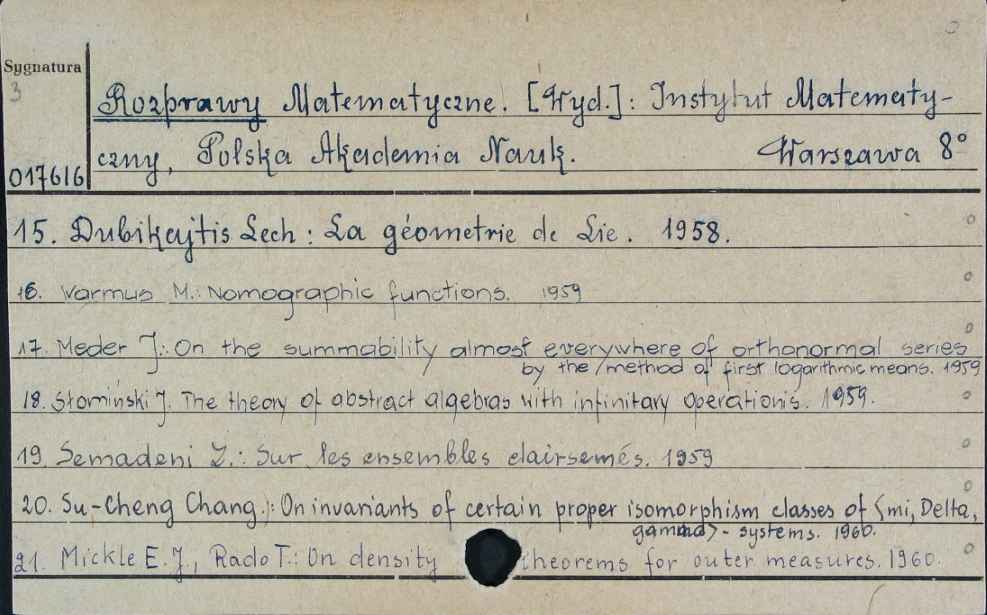 Sygnatura
3
Rozprawy Matematyczne. [Wyd.]: Instytut Matematy-
czny, Polska Akademia Nauk. Warszawa 8°
017616
15. Dubikajtis Lech: La géometrie de Lie. 1958.
16. Warmus M.: Nomographic functions. 1959
17. Meder J.: On the summability almost everywhere of orthonormal series
by the method of first logarithmic means. 1959
18. Słomiński J. The theory of abstract algebras with infinitary operations. 1959.
19. Semadeni Z.: Sur les ensembles clairsemés. 1959
20. Su-Cheng Chang.: On invariants of certain proper isomorphism classes of <mi, Delta,
gamma> - systems. 1960.
21. Mickle E. J., Rado T.: On density theorems for outer measures. 1960.